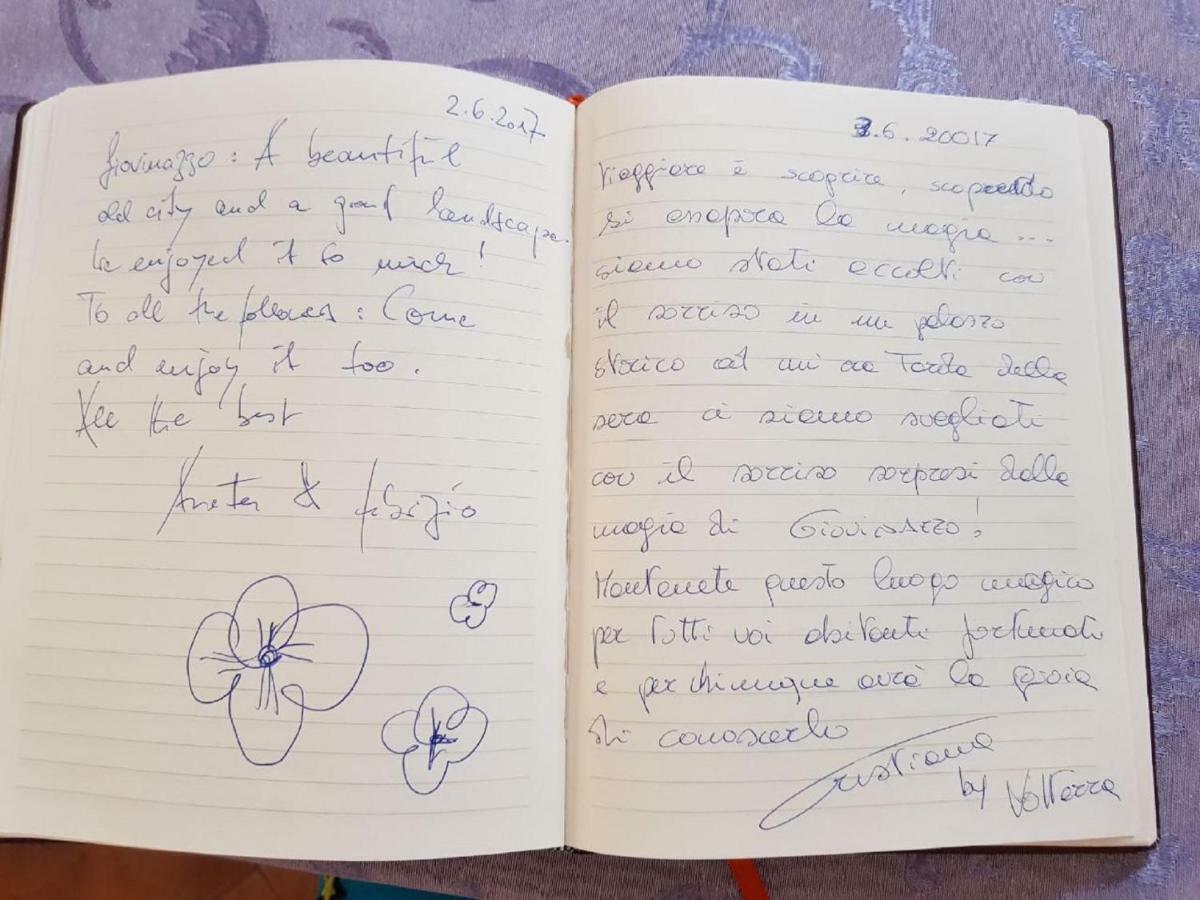 2.6.2017
Giovinazzo : A beautiful
old city and a good landscape.
We enjoyed it so much!
To all the : Come
and enjoy it too.
All the best
& Fabrizio
3.6.20017
Viaggiare è scoprire, scoprendo
si assapora la magia ...
siamo stati accolti con
il sorriso in un palazzo
storico ad un'ora Tarda della
sera ci siamo svegliati
con il sorriso sorpresi dalla
magia di Giovinazzo!
Mantenete questo luogo magico
per Tutti voi abitanti fortunati
e per chiunque avrà la gioia
di conoscerlo
Cristiana
by Volterra